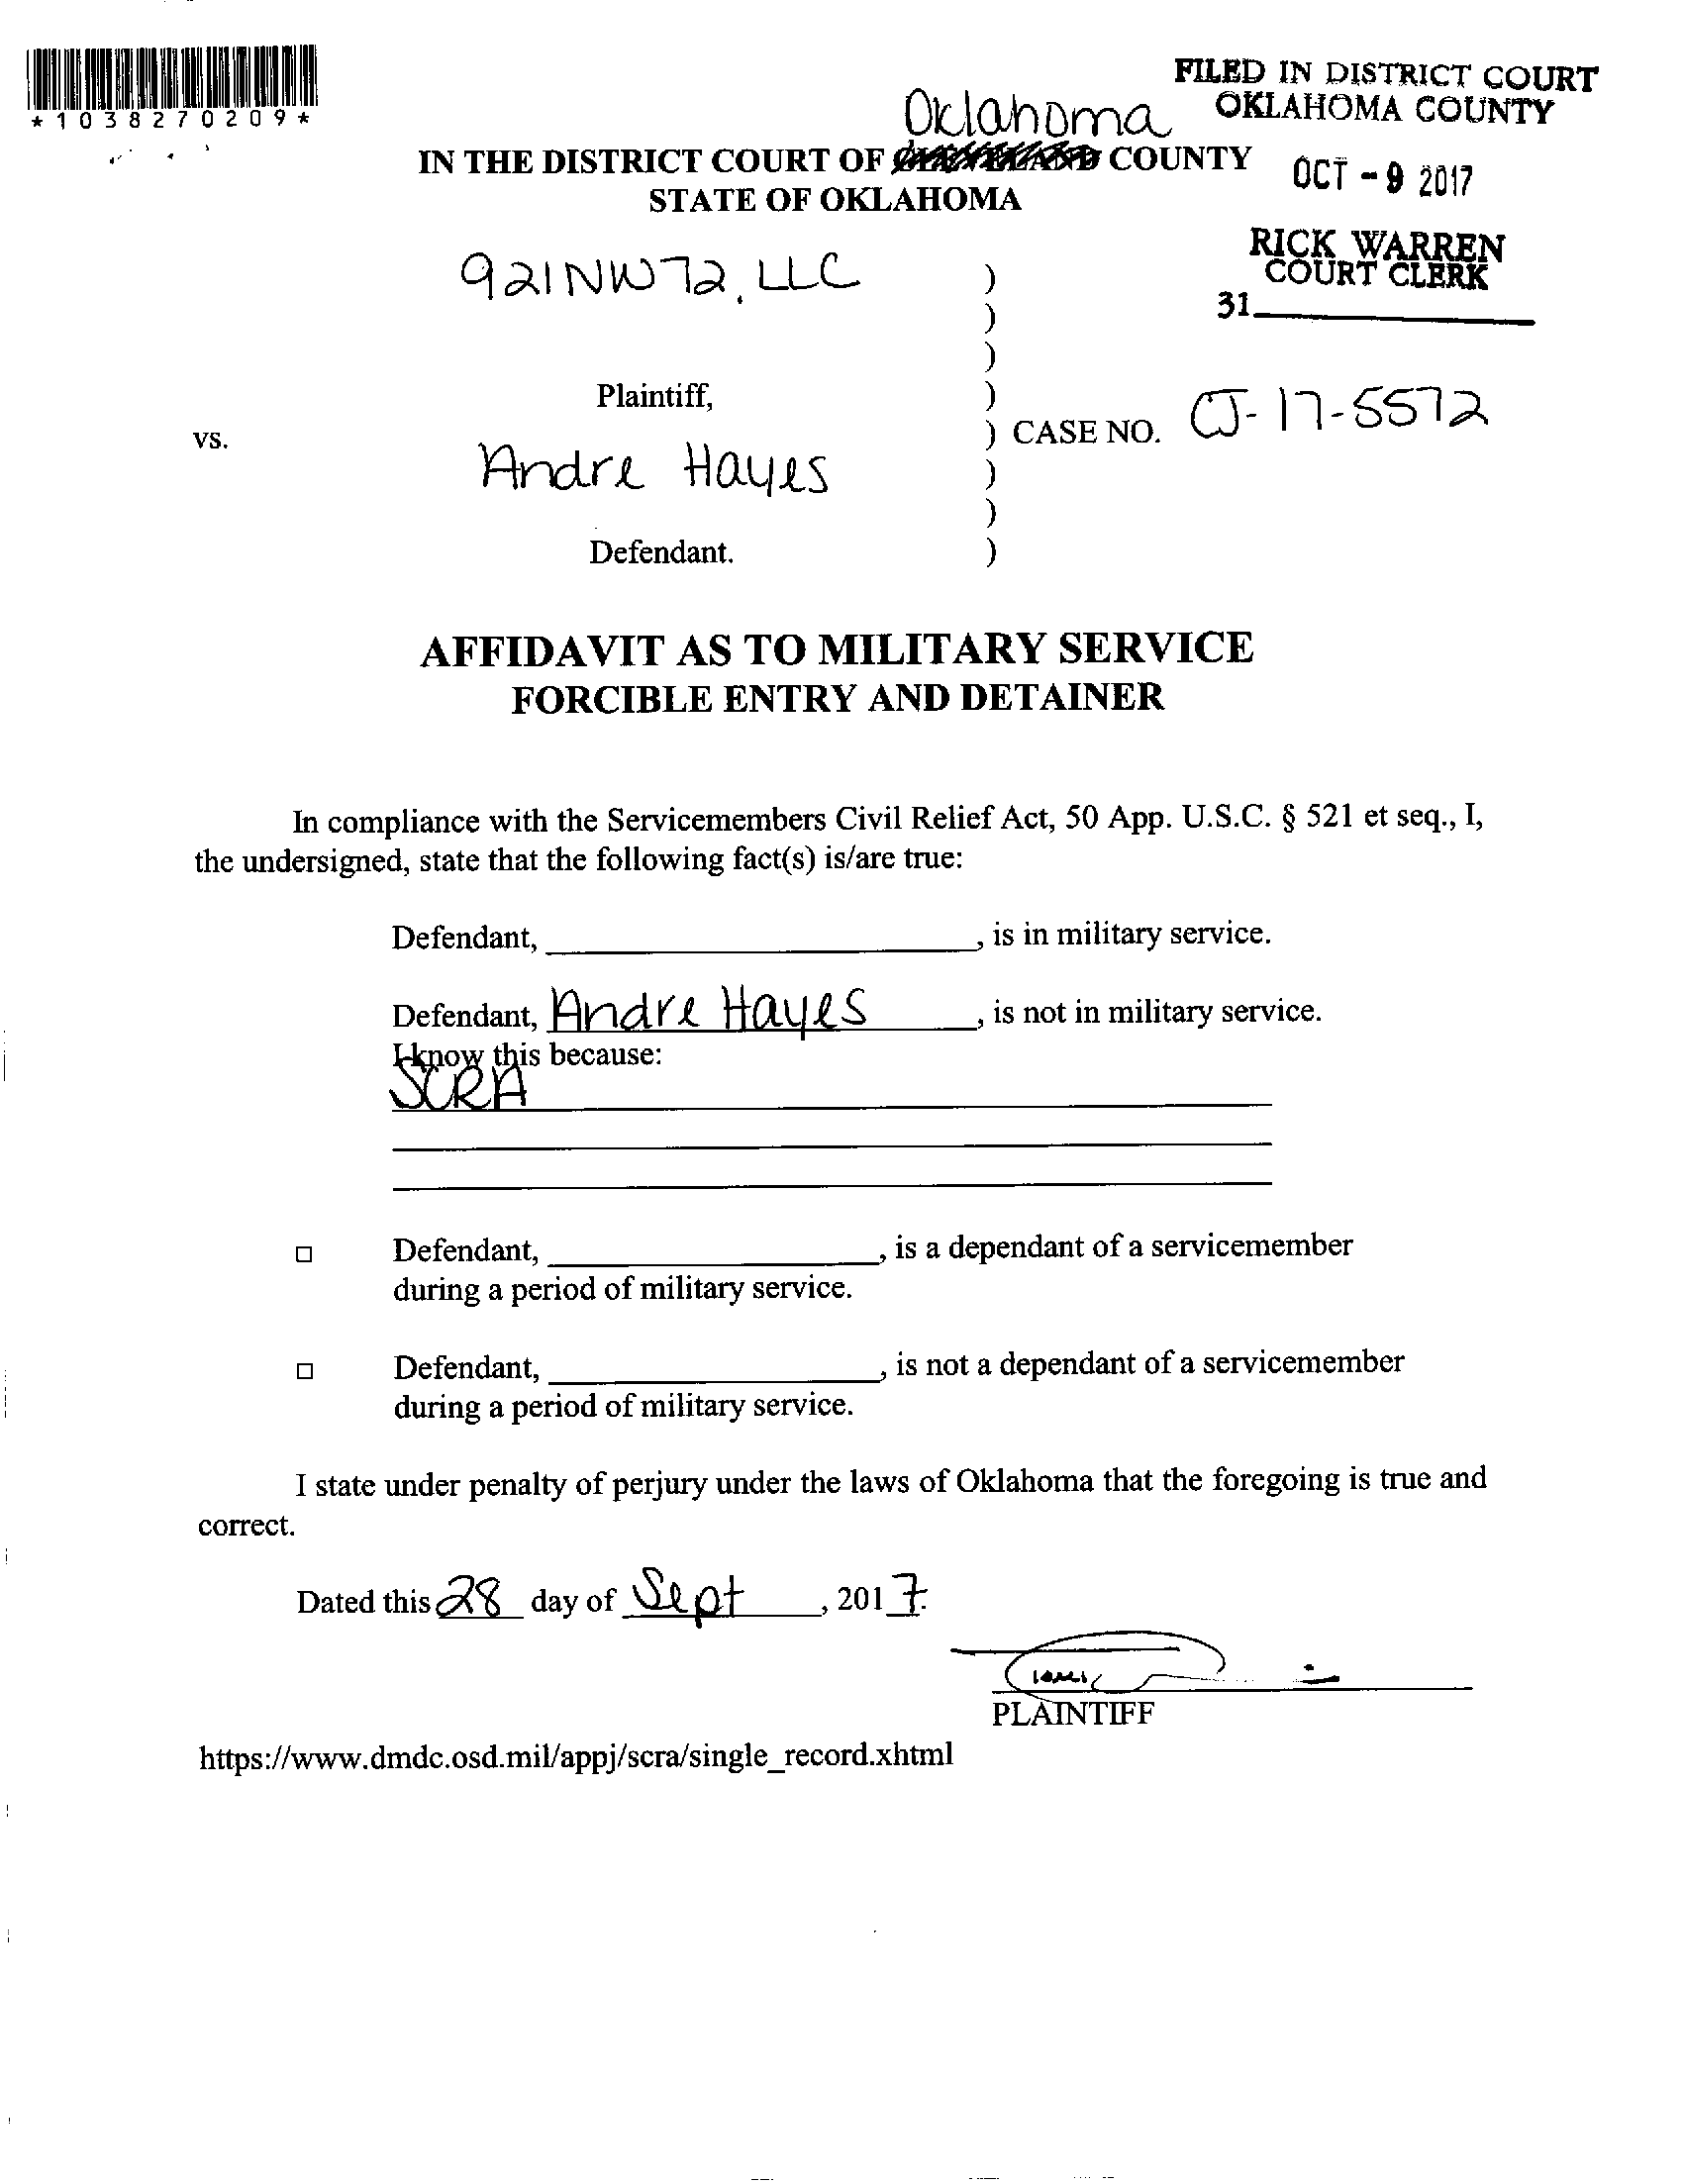 *1038270209*
FILED IN DISTRICT COURT
OKLAHOMA COUNTY
OCT - 9 2017
RICK WARREN
COURT CLERK
31
Oklahoma
IN THE DISTRICT COURT OF COUNTY
STATE OF OKLAHOMA
921NW72, LLC )
)
)
Plaintiff, )
vs. ) CASE NO. CJ-17-5572
Andre Hayes )
)
Defendant. )
AFFIDAVIT AS TO MILITARY SERVICE
FORCIBLE ENTRY AND DETAINER
In compliance with the Servicemembers Civil Relief Act, 50 App. U.S.C. § 521 et seq., I,
the undersigned, state that the following fact(s) is/are true:
Defendant, , is in military service.
Defendant, Andre Hayes , is not in military service.
I know this because:
SCRA
Defendant, , is a dependant of a servicemember
during a period of military service.
Defendant, , is not a dependant of a servicemember
during a period of military service.
I state under penalty of perjury under the laws of Oklahoma that the foregoing is true and
correct.
Dated this 28 day of Sept , 2017.
PLAINTIFF
https://www.dmdc.osd.mil/appj/scra/single_record.xhtml